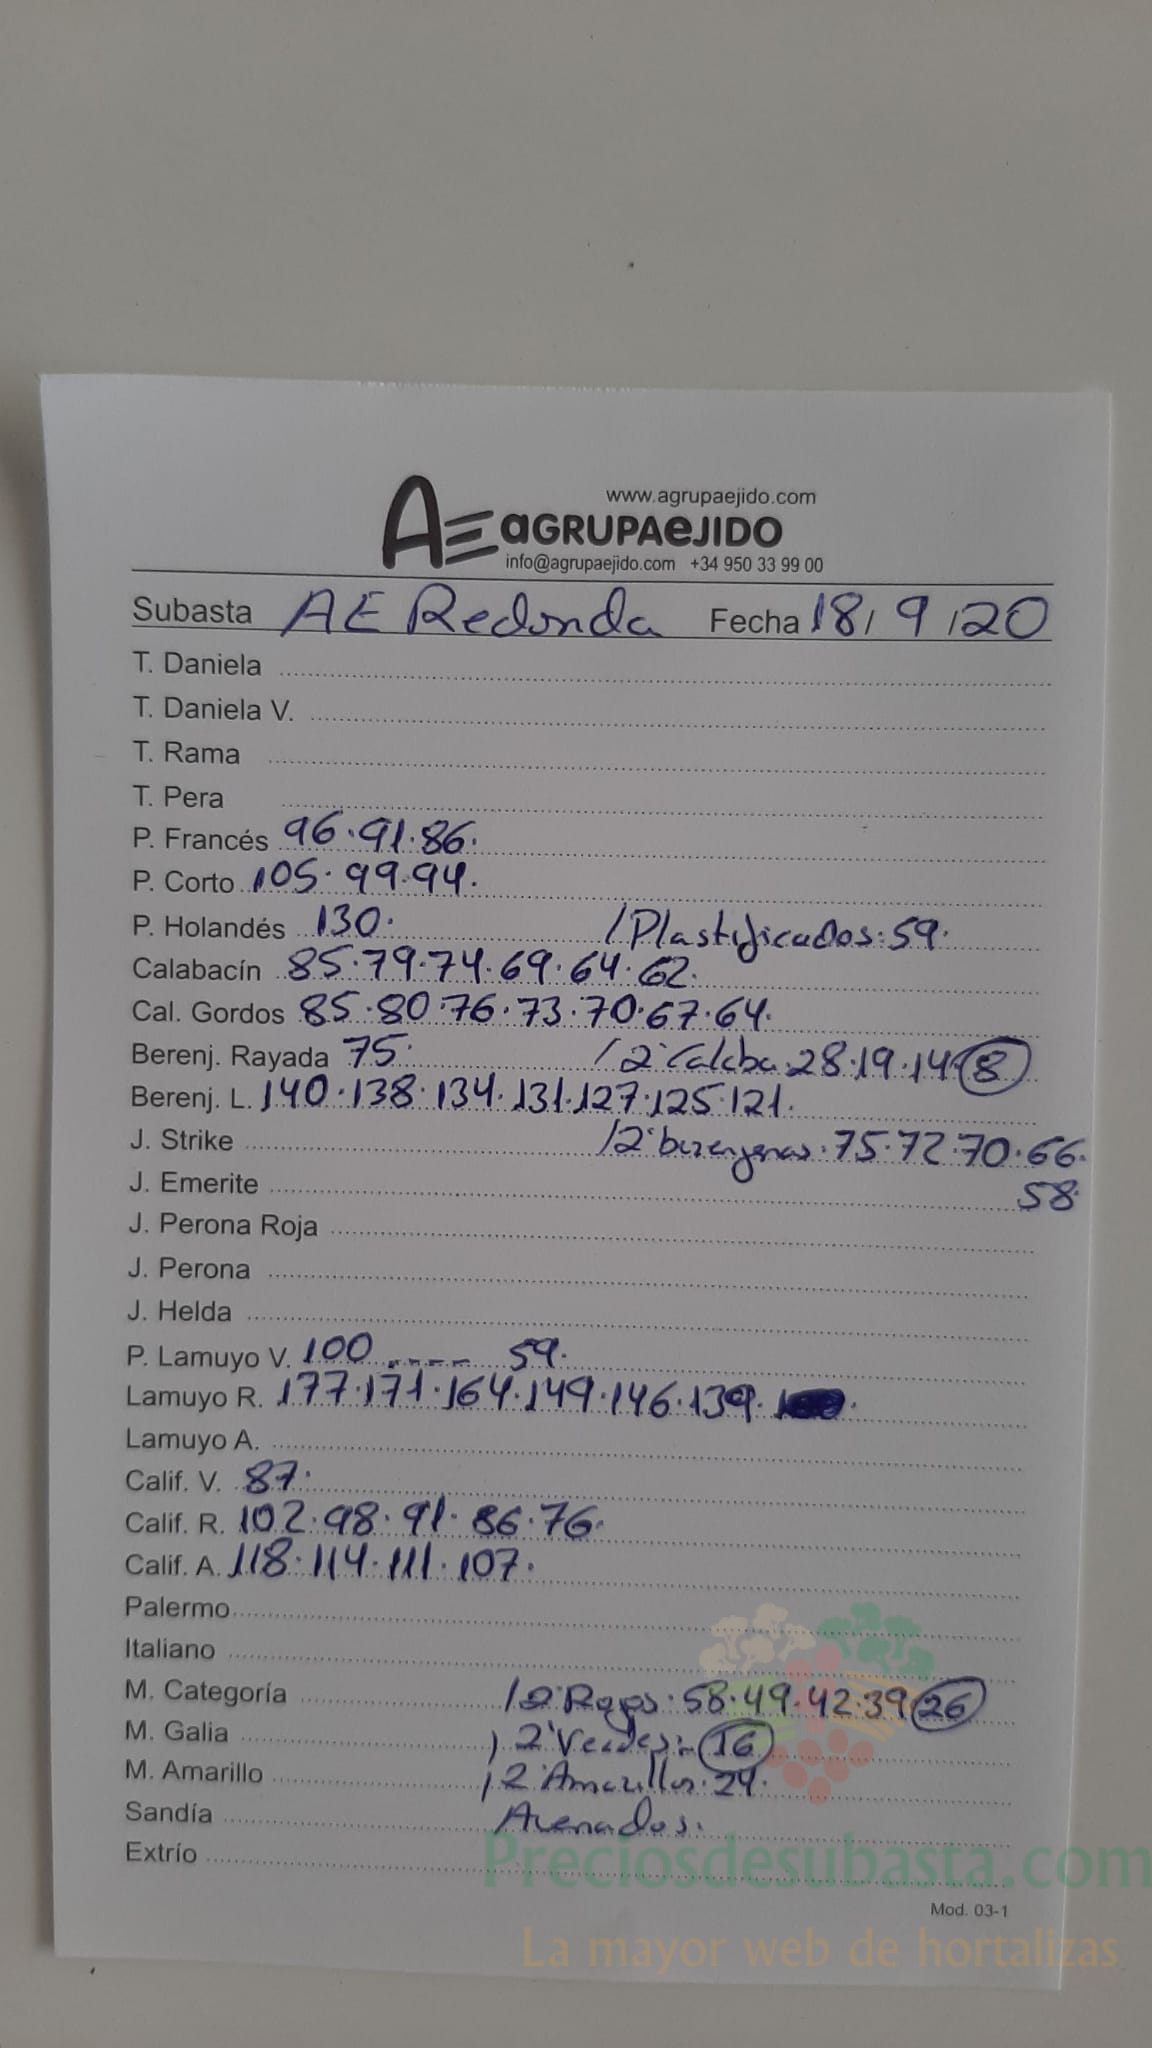 www.agrupaejido.com
AE aGRUPAeJIDO
info@agrupaejido.com +34 950 33 99 00
Subasta AE Redonda Fecha 18/ 9 /20
T. Daniela
T. Daniela V.
T. Rama
T. Pera
P. Francés 96.91.86.
P. Corto 105.99.94.
P. Holandés 130. /Plastificados:59.
Calabacín 85.79.74.69.64.62.
Cal. Gordos 85.80.76.73.70.67.64.
Berenj. Rayada 75. /2ª Calaba.28.19.14.8
Berenj. L. 140.138.134.131.127.125.121.
J. Strike /2ª berenjenas.75.72.70.66.
J. Emerite 58.
J. Perona Roja
J. Perona
J. Helda
P. Lamuyo V. 100 ---- 59.
Lamuyo R. 177.171.164.149.146.139.
Lamuyo A.
Calif. V. 87.
Calif. R. 102.98.91.86.76.
Calif. A. 118.114.111.107.
Palermo
Italiano
M. Categoría /2ª Rojos:58.49.42.39 26
M. Galia /2ª Verdes:- 16
M. Amarillo /2ª Amarillos.24.
Sandía Asenados.
Extrío
Preciosdesubasta.com
Mod. 03-1
La mayor web de hortalizas